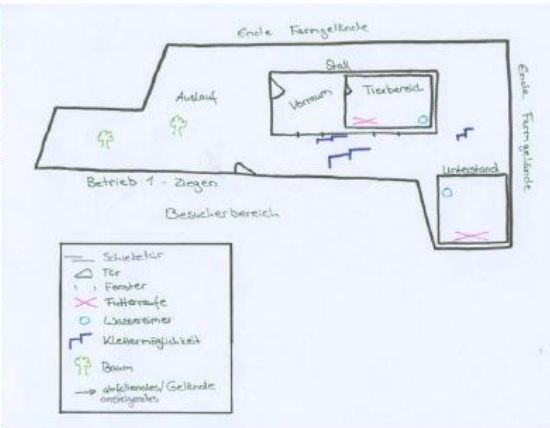 Ende Farmgelände
Stall
Auslauf
Vorraum
Tierbereich
Ende Farmgelände
Unterstand
Betrieb 1 - Ziegen
Besucherbereich
Schiebetür
Tür
Fenster
Futterraufe
Wassereimer
Klettermöglichkeit
Baum
abfallendes/Gelände
ansteigendes